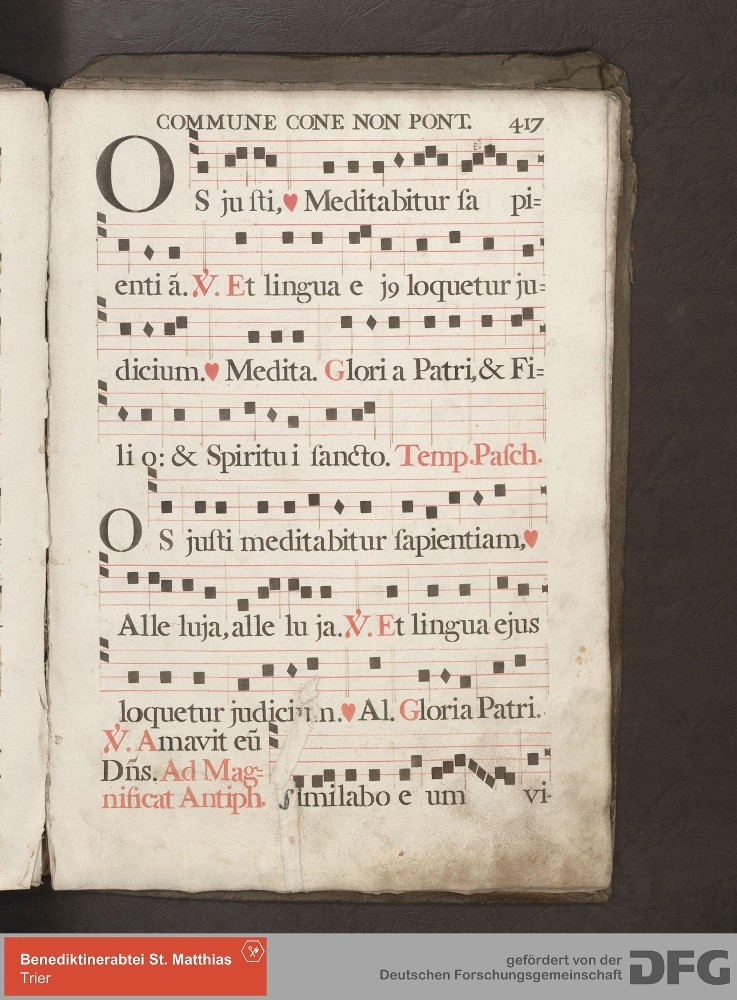 COMMUNE CONF. NON PONT. 417
OS ju ſti,♥ Meditabitur ſa pi=
enti ã. ℣. Et lingua e j9 loquetur ju=
dicium.♥ Medita. Glori a Patri,& Fi=
li o: & Spiritu i ſancto. Temp.Paſch.
OS juſti meditabitur ſapientiam,♥
Alle luja, alle lu ja. ℣. Et lingua ejus
loquetur judicium.♥ Al. Gloria Patri.
℣. Amavit eũ
Dñs. Ad Mag=
nificat Antiph. ſimilabo e um vi-
Benediktinerabtei St. Matthias
Trier
gefördert von der
Deutschen Forschungsgemeinschaft DFG